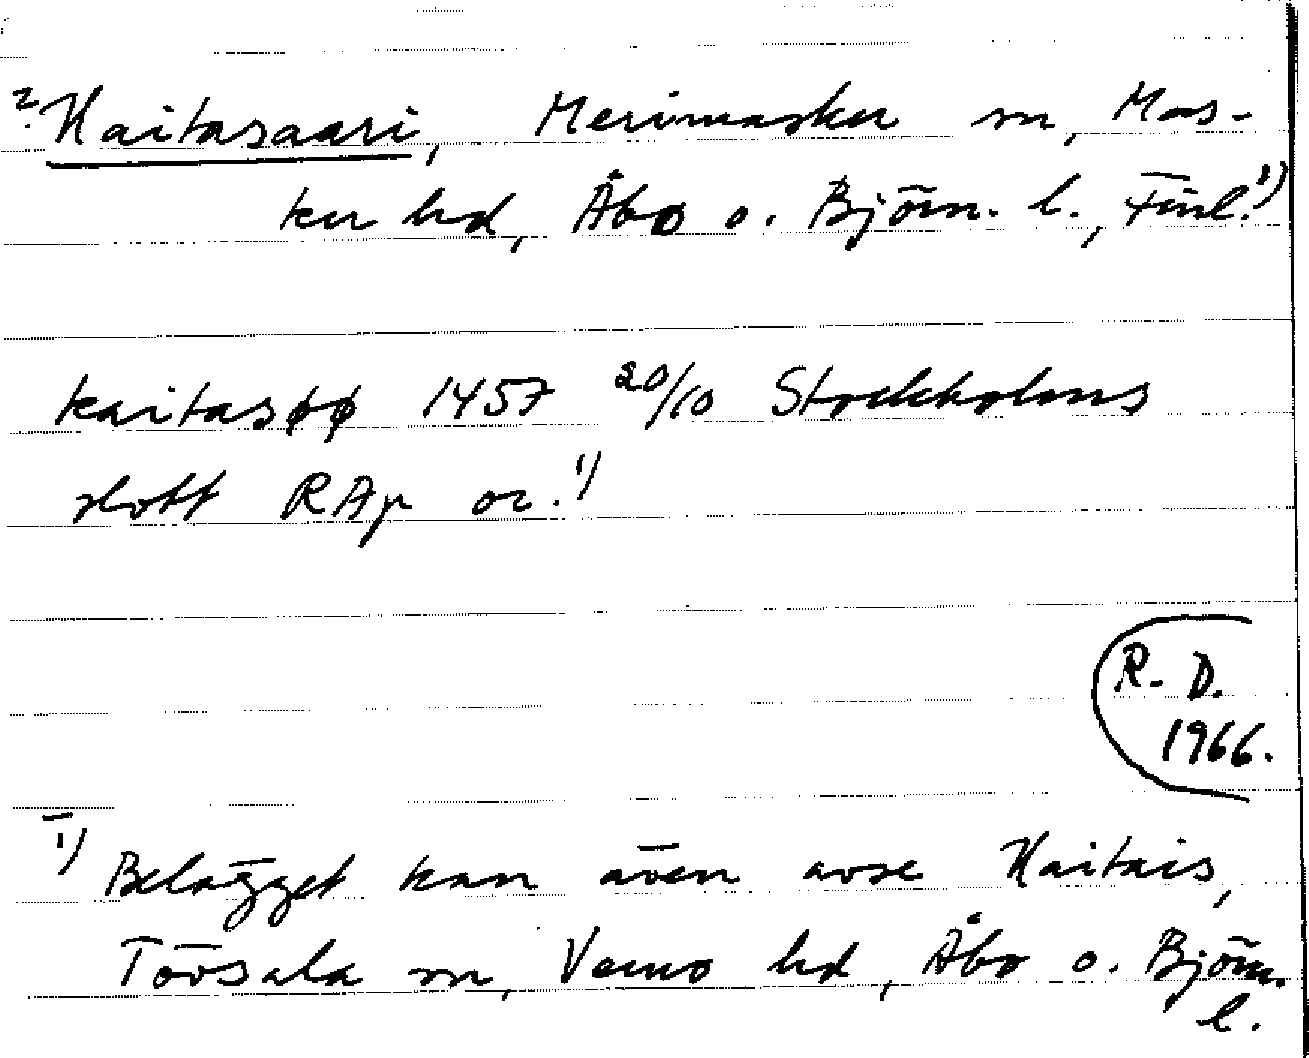 ? Kaitasaari, Merimasku sn, Mas-
ku hd, Åbo o. Björn. l., Finl.1)
kaitasøø 1457 20/10 Stockholms
slott RAp or.1)
R. D.
1966.
1) Belägget kan även avse Kaitais,
Tövsala sn, Vemo hd, Åbo o. Björn.
l.